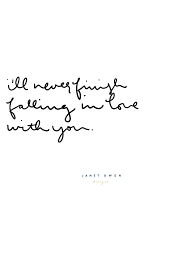 i'll never finish
falling in love
with you.
JANET GWEN
designs